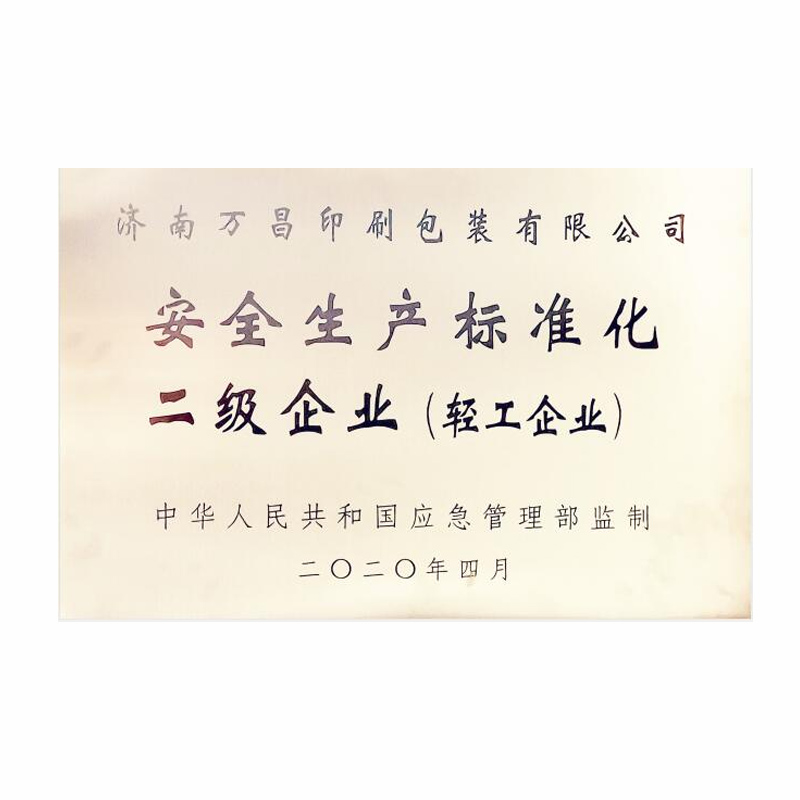 济南万昌印刷包装有限公司
安全生产标准化
二级企业（轻工企业）
中华人民共和国应急管理部监制
二〇二〇年四月